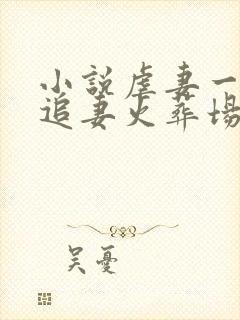 小說虐妻一
追妻火葬場
吴憂